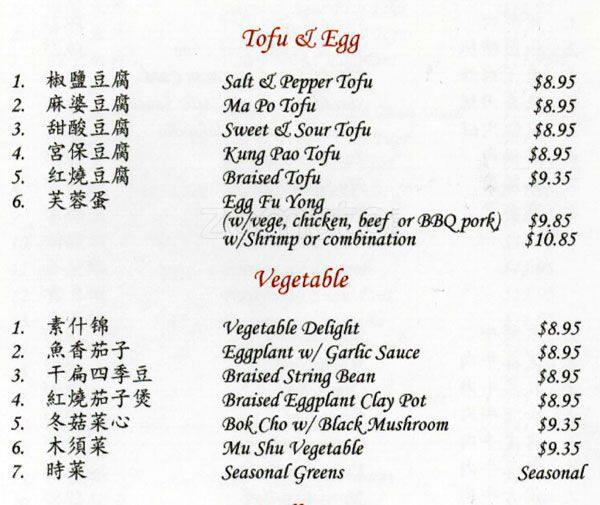 Tofu & Egg
1. 椒鹽豆腐 Salt & Pepper Tofu $8.95
2. 麻婆豆腐 Ma Po Tofu $8.95
3. 甜酸豆腐 Sweet & Sour Tofu $8.95
4. 宮保豆腐 Kung Pao Tofu $8.95
5. 紅燒豆腐 Braised Tofu $9.35
6. 芙蓉蛋 Egg Fu Yong
(w/vege, chicken, beef or BBQ pork) $9.85
w/Shrimp or combination $10.85
Vegetable
1. 素什锦 Vegetable Delight $8.95
2. 魚香茄子 Eggplant w/ Garlic Sauce $8.95
3. 干扁四季豆 Braised String Bean $8.95
4. 紅燒茄子煲 Braised Eggplant Clay Pot $8.95
5. 冬菇菜心 Bok Cho w/ Black Mushroom $9.35
6. 木須菜 Mu Shu Vegetable $9.35
7. 時菜 Seasonal Greens Seasonal